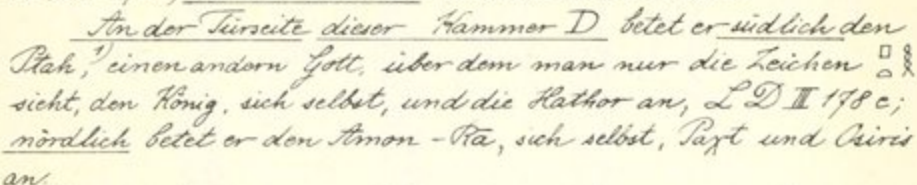 An der Türseite dieser Kammer D betet er südlich den
Ptah,¹⁾ einen andern Gott, über dem man nur die Zeichen 𓊪𓏏𓎛
sieht, den König, sich selbst, und die Hathor an, L D III 178 c;
nördlich betet er den Amon-Ra, sich selbst, Paχt und Osiris
an.